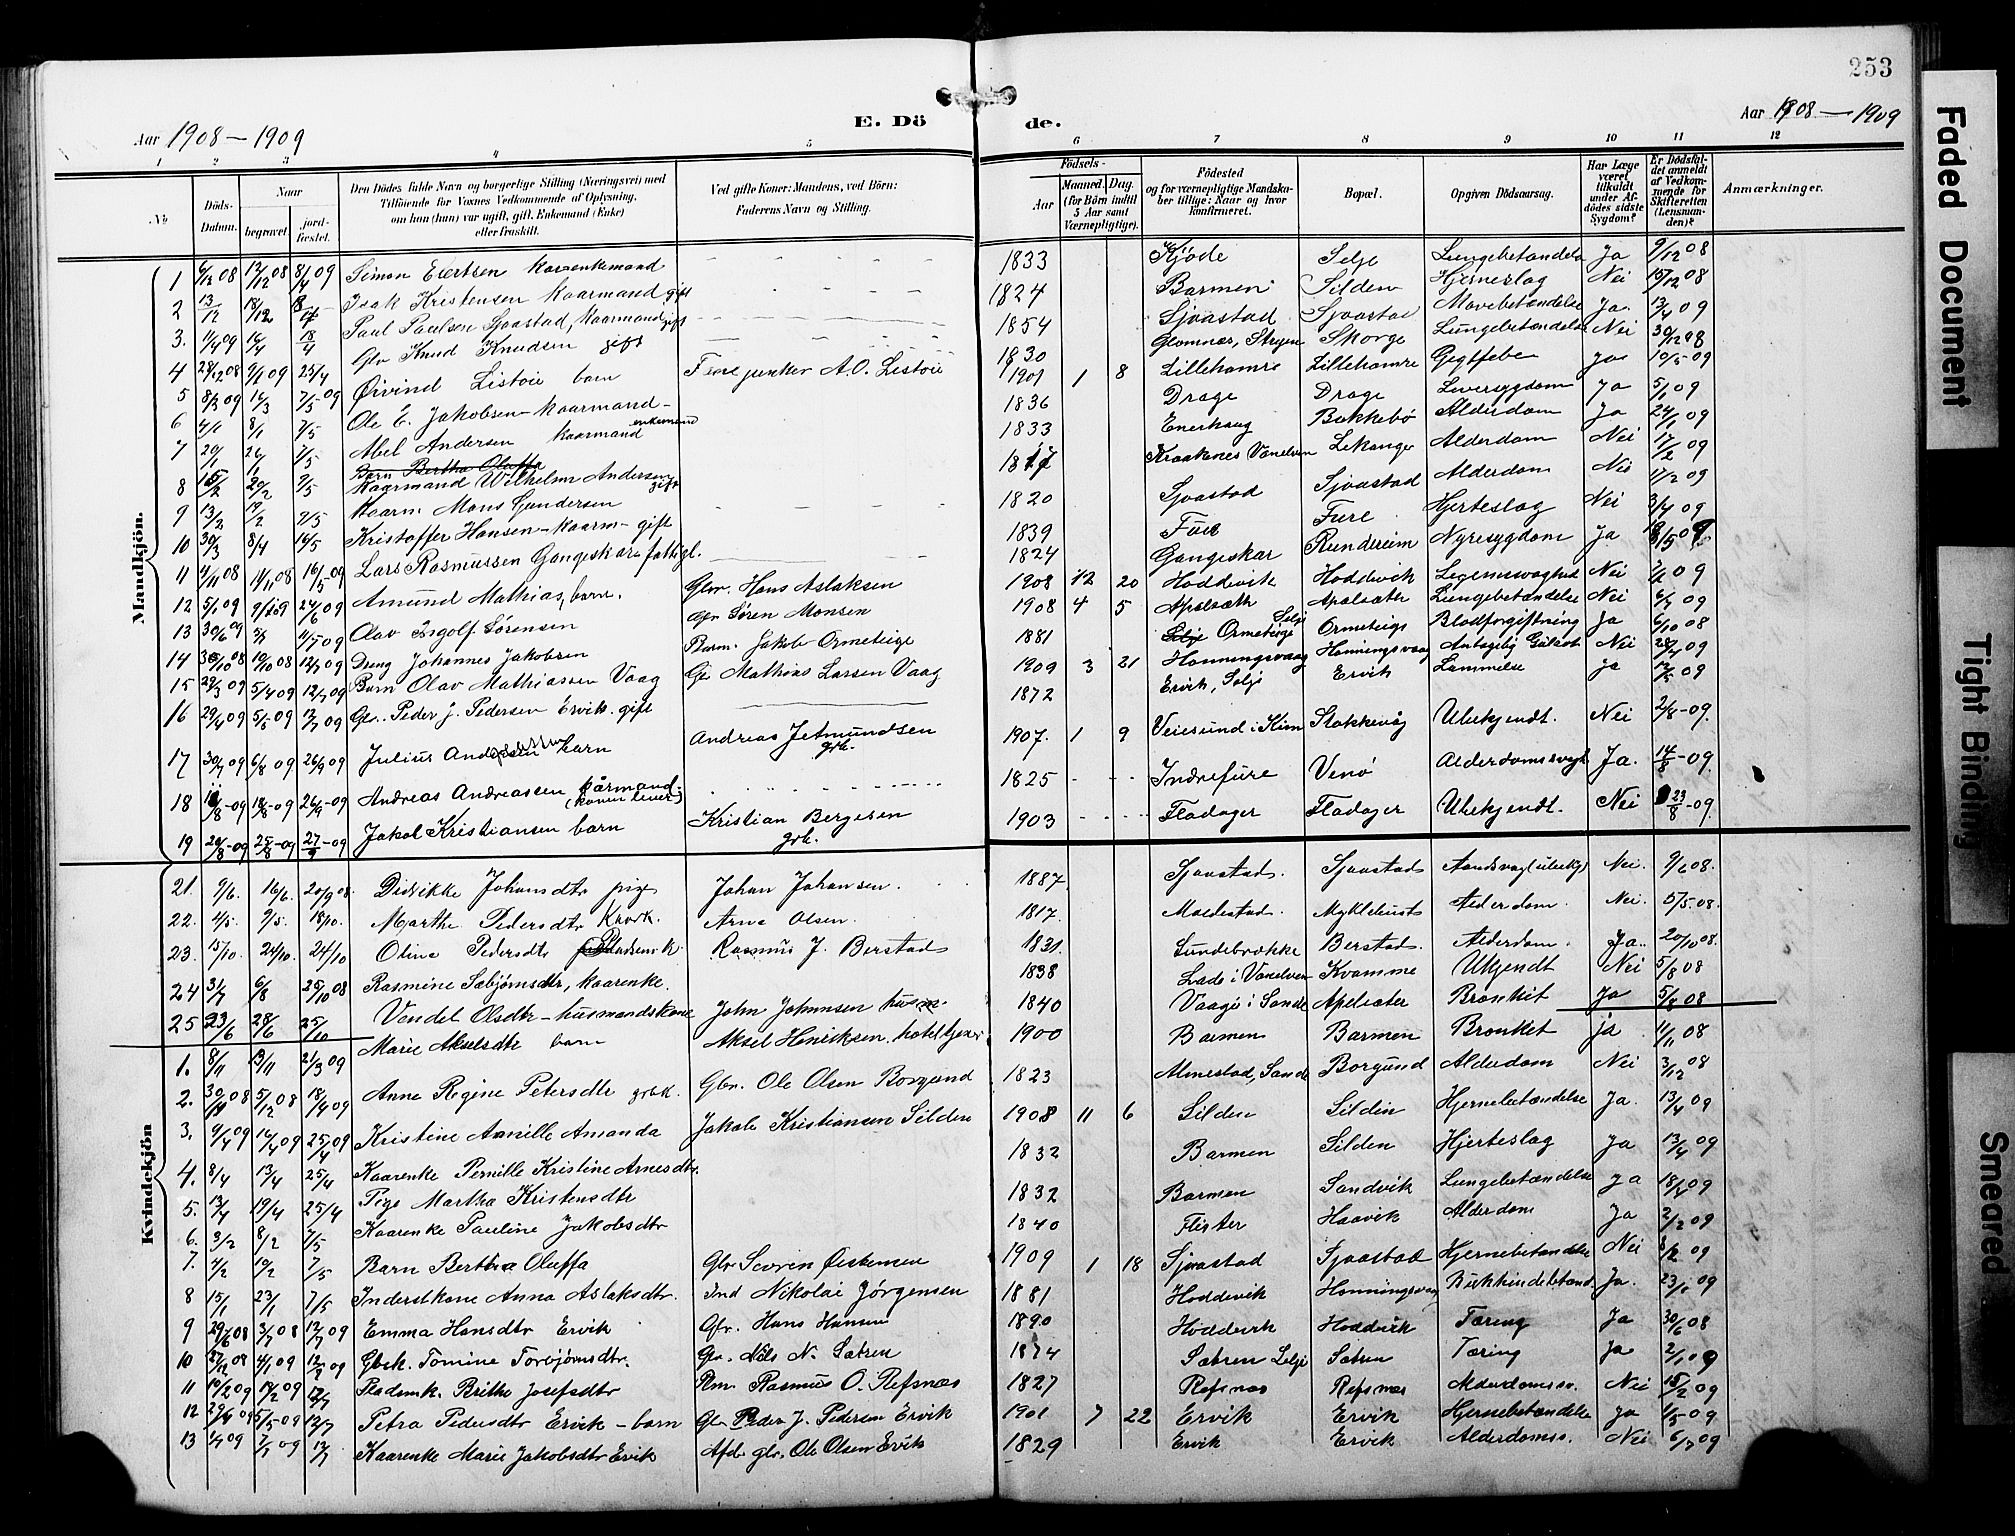 253
E. Döde.
Aar 1908 – 1909
Aar 1908 – 1909
1 2 3 4 5 6 7 8 9 10 11 12
No
Döds-Datum.
Naar
begravet.
jord-fæstet.
Den Dödes fulde Navn og borgerlige Stilling (Næringsvei) med
Tilföiende for Voxnes Vedkommende af Oplysning,
om han (hun) var ugift, gift, Enkemand (Enke)
eller fraskilt.
Ved gifte Koner: Mandens, ved Börn:
Faderens Navn og Stilling.
Födsels-
Aar
Maaned. Dag.
(for Börn indtil
5 Aar samt
Værnepligtige).
Födested
og for værnepligtige Mandska-
ber tillige: Naar og hvor
konfirmeret.
Bopæl.
Opgiven Dödsaarsag.
Har Læge
været
tilkaldt
under Af-
dödes sidste
Sygdom?
Er Dödsfal-
det anmeldt
af Vedkom-
mende for
Skifteretten
(Lensman-
den)?
Anmærkninger.
Mandkjön.
1 6/12 08 12/12 08 8/4 09 Simon kaarenkemand 1833 Kjöde Selje Lungebetændelse Ja 9/12 08
2 13/12 18/12 Isak Kristensen kaarmand gift 1824 Barmen Silden Hjerneslag Nei 15/12 08
3. 11/4 09 16/4 18/4 Paul Paulsen Sjaastad, kaarmand gift 1854 Sjaastad Sjaastad Mavebetændelse Ja. 13/4 09
4 28/12 08 9/1 09 25/4 Gbr Knud Knudsen gift 1830 Glomnes, Stryn Skorge Lungebetændelse Nei 30/12 08
5 8/3 09 16/3 7/5 09 Øivind Listöie barn A.O. Listöie 1901 1 8 Lillehamre Lillehamre Gigtfeber ja 10/5 09
6 4/1 8/1 7/5 Ole E. Jakobsen – kaarmand – 1836 Drage Drage Leversygdom Ja 5/1 09
7 20/1 26/1 7/5 Abel Andersen kaarmand enkemand 1833 Enerhaug Bakkebö Alderdom Ja 24/1 09
Barn Bertha Oluffa
8 15/2 20/2 7/5 Kaarmand Wilhelm Andersen gift Kraakenes Vanelven Lekanger Alderdom Nei 17/2 09
9 13/2 19/2 7/5 Kaarm Mons Gundersen 1820 Sjaastad Sjaastad Alderdom Nei 17/2 09
10 30/3 8/4 16/5 Kristoffer Hansen – kaarm – gift 1839 Fure Fure Hjerteslag Nei 3/4 09
11 4/11 08 11/11 08 16/5 09 Lars Rasmussen Gangeskar fattigl. 1824 Gangeskar Rundereim Nyresygdom Ja
12 5/1 09 9/1 09 24/6 09 Amund Mathias, barn. Gbr. Hans Aslaksen 1908 12 20 Hoddevik Hoddevik Legemssvaghed Nei 7/2 09
13 30/6 09 5/7 11/7 09 Olav Ingolf Sörensen Gbr Sören Monsen 1908 4 5 Apalsæth Apalsæter Lungebetændelse Nei 6/7 09
14 30/10 08 10/10 08 12/7 09 Dreng Johannes Jakobsen Barm. Jakob Ormeteige 1881 Selje Ormeteige Selje Ormeteige Blodforgiftning Ja 6/10 08
15 29/3 09 5/4 09 12/7 09 Barn Olav Mathiassen Vaag Gbr Mathias Larsen Vaag 1909 3 21 Honningsvaag Honningsvaag Antagelig Nei 28/4 09
16 29/4 09 5/5 09 12/7 09 Gbr. Peder J. Pedersen Ervik. gift 1872 Ervik, Selje Ervik Lammelse ja 17/5 09
17 30/7 09 6/8 09 26/9 09 Julius Andreassen barn Andreas Jetmundsen grb. 1907. 1 9 Veiesund i Kinn Stokkevåg Ubekjendt. Nei 2/8 – 09.
18 11/8 – 09 18/8 – 09 26/9 – 09 Andreas Andreassen kårmand. (konen lever) 1825 Indrefure Venö Alderdomssvagh Ja. 14/8 – 09.
19 20/8 – 09 25/8 – 09 27/9 – 09 Jakob Kristiansen barn Kristian Bergesen grb. 1903 Fladager Fladager Ubekjendt. Nei 23/8 – 09.
Kvindekjön
21. 9/6. 16/6. 20/9 08. Didrikke Johansdtr pige Johan Johansen. 1887. Sjaastad. Sjaastad Nei. 9/6 08.
22. 4/5. 9/5. 18/10. Marthe Pedersdtr Arne Olsen. 1817. Maldestad. Myklebust Alderdom. Nei. 5/5. 08.
23. 15/10. 24/10. 24/10 Oline Pedersdtr Rasmus J. Berstad 1831. Sundebrække Berstad. Alderdom. Ja. 20/10 08.
24 31/7 6/8 25/10 08 Rasmine Sæbjørnsdtr, kaarenke. 1838 Lade i Vanelven Kvamme Ukjendt Nei 5/8 08
25 23/6 28/6 25/10 Vendel Olsdtr – husmandskone John Johnnsen husm. 1840 Vaage i Sande Apelsæter Bronkit Ja
1. 8/11 13/11 21/3 09 Marie Akselsdtr barn Aksel Henriksen, 1900 Barmen Barmen Bronket ja 11/11 08
2. 30/11 08 5/12 08 18/4 09 Anne Regine Petersdtr gbk. Gbr. Ole Olsen Borgund 1823 Almestad, Sande Borgund Alderdom Nei 3/12 08
3. 9/4 09 16/4 09 25/4 09 Kristine Amanda Jakob Kristiansen Silden 1908 11 6 Silden Silden Hjernebetændelse Ja. 13/4 09
4. 8/4 13/4 25/4 Kaarenke Pernille Kristine Arnesdtr. 1832 Barmen Silden Hjerteslag Ja 13/4 09
5. 13/4 19/4 25/4 Pige Martha Kristensdtr 1832 Barmen Sandvik Lungebetændelse ja 18/4 09
6. 3/2 8/2 7/5 Kaarenke Pauline Jakobsdtr 1840 Flister Haavik Alderdom Ja 2/2 09
7. 4/2 10/2 7/5 Barn Bertha Oluffa Gbr Severin 1909 1 18 Sjaastad Sjaastad Hjernebetændelse Nei 8/2 09
8 15/1 23/1 7/5 Inderstkone Anna Aslaksdtr. Ind Nikolai Jörgensen 1881 Hoddevik Honningsvaag Ja. 23/1 09
9 29/6 08 3/7 08 12/7 09 Emma Hansdtr Ervik Gbr. Hans Hansen 1890 Hoddevik Hoddevik Tæring Ja 30/6 08
10 4/1 09 12/7 09 Gbrk. Tomine Torbjørnsdtr. Gbr. Nils N. Sætren 1874 Sætren Selje Sætren Tæring Ja 2/1 09
11 10/2 09 17/2 09 12/7 Pladsmk. Brithe Josefsdtr Pm. Rasmus O. Refsnæs 1827 Refsnæs Refsnæs Alderdomssv. Nei 15/2 09
12 29/4 09 5/5 09 12/7 Petra Pedersdtr Ervik – barn Gbr Peder J. Pedersen Ervik 1901 7 22 Ervik Ervik Hjernebetændelse Ja 1/5 09
13 1/7 09 7/7 09 12/7 Kaarenke Marie Jakobsdtr Ervik Afd. gbr. Ole Olsen Ervik 1829 Ervik Ervik Alderdomssv. Nei 6/7 09
Faded Document
Tight Binding
Smeared